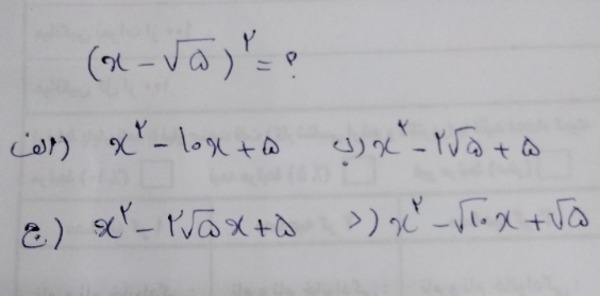 (x - √۵)^۲ = ؟
الف) x^۲ - ۱۰x + ۵ ب) x^۲ - ۲√۵ + ۵
ج) x^۲ - ۲√۵x + ۵ د) x^۲ - √۱۰x + √۵